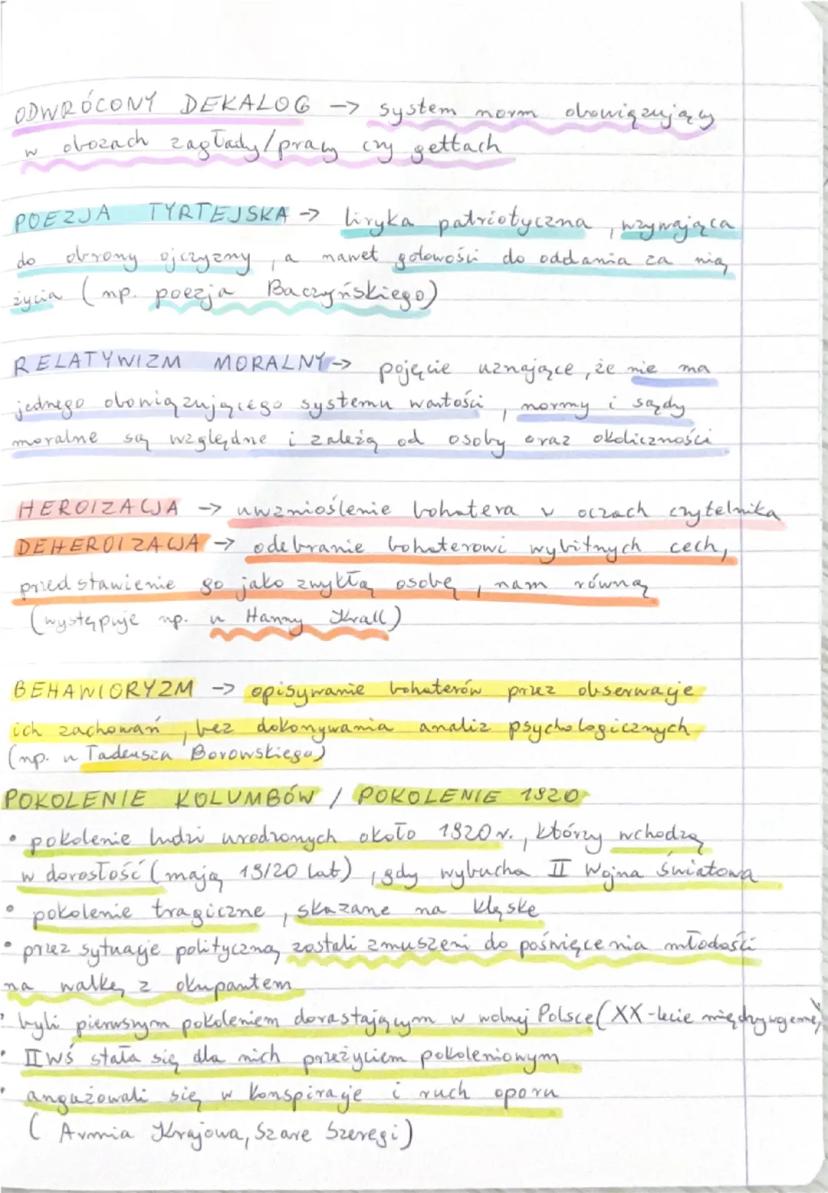 ODWRÓCONY DEKALOG -> system norm obowiązujący
w obozach zagłady/pracy czy gettach
POEZJA TYRTEJSKA -> liryka patriotyczna, wzywająca
do obrony ojczyzny, a nawet gotowości do oddania za nią
życia (np. poezja Baczyńskiego)
RELATYWIZM MORALNY -> pojęcie uznające, że nie ma
jednego obowiązującego systemu wartości, normy i sądy
moralne są względne i zależą od osoby oraz okoliczności
HEROIZACJA -> uwznioślenie bohatera w oczach czytelnika
DEHEROIZACJA -> odebranie bohaterowi wybitnych cech,
przedstawienie go jako zwykłą osobę, nam równą
(występuje np. u Hanny Krall)
BEHAWIORYZM -> opisywanie bohaterów przez obserwacje
ich zachowań, bez dokonywania analiz psychologicznych
(np. u Tadeusza Borowskiego)
POKOLENIE KOLUMBÓW / POKOLENIE 1920
• pokolenie ludzi urodzonych około 1920 r., którzy wchodzą
w dorosłość (mają 19/20 lat), gdy wybucha II Wojna Światowa
• pokolenie tragiczne, skazane na klęskę
• przez sytuację polityczną zostali zmuszeni do poświęcenia młodości
na walkę z okupantem
• byli pierwszym pokoleniem dorastającym w wolnej Polsce (XX-lecie międzywojenne)
• II WŚ stała się dla nich przeżyciem pokoleniowym
• angażowali się w konspirację i ruch oporu
(Armia Krajowa, Szare Szeregi)